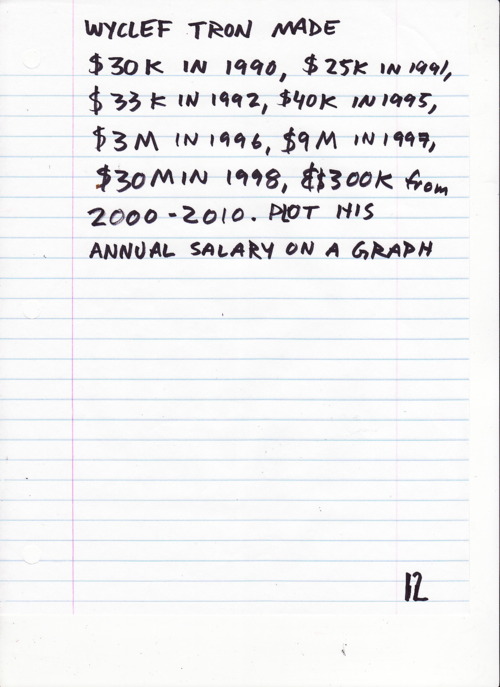 WYCLEF TRON MADE
$30K IN 1990, $25K IN 1991,
$33K IN 1992, $40K IN 1995,
$3M IN 1996, $9M IN 1997,
$30M IN 1998, $300K from
2000-2010. PLOT HIS
ANNUAL SALARY ON A GRAPH
12